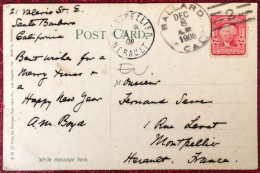 21 Valerio St. E.
Santa Barbara
California
POST CARD
MONTPELLIER
HERAULT
09
BALLARD
DEC
8
A.M.
1908
CAL.
Best wishes for a
Merry Xmas &
a
Happy New Year
A. M. Boyd
Monsieur
Fernand
1 Rue
Montpellier
Herault. France.
Write message here.